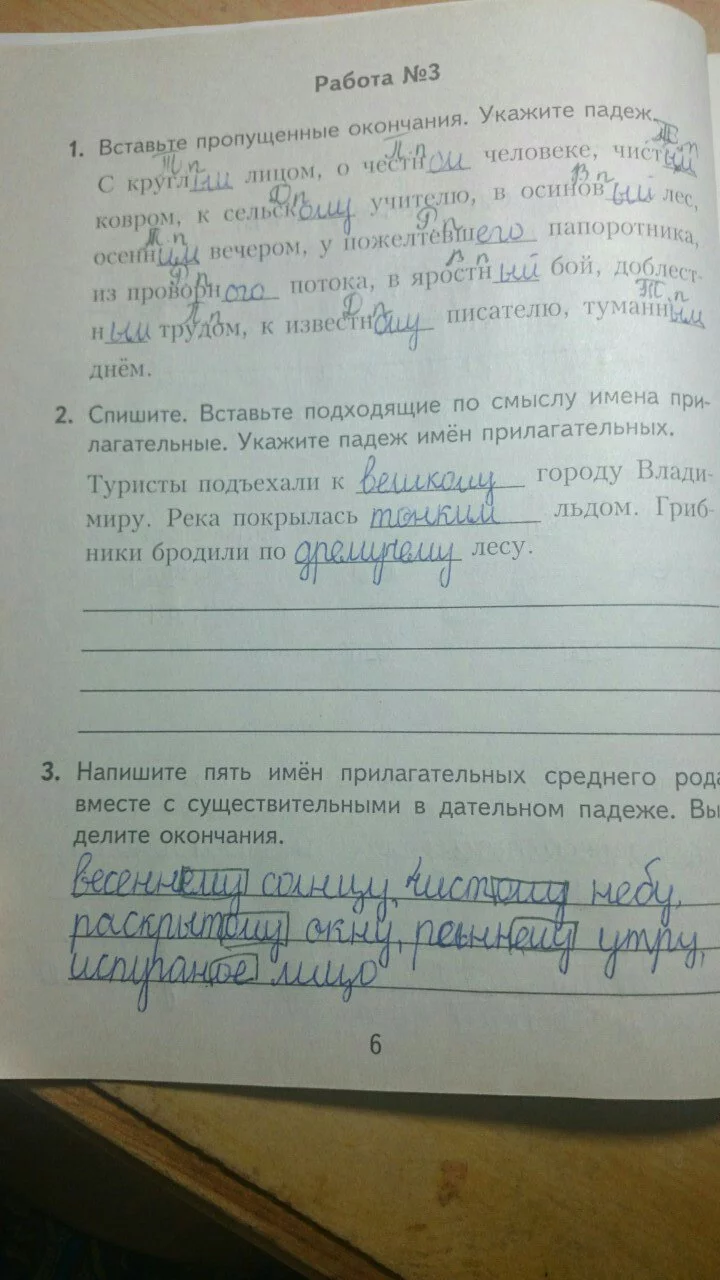 Работа №3
1. Вставьте пропущенные окончания. Укажите падеж.
Тп Пп Тп
С круглым лицом, о честном человеке, чистым
Дп Вп
ковром, к сельскому учителю, в осиновый лес,
Тп Рп
осенним вечером, у пожелтевшего папоротника,
Рп Вп
из проворного потока, в яростный бой, доблест-
Дп Тп
ным трудом, к известному писателю, туманным
днём.
2. Спишите. Вставьте подходящие по смыслу имена при-
лагательные. Укажите падеж имён прилагательных.
Туристы подъехали к великому городу Влади-
миру. Река покрылась тонким льдом. Гриб-
ники бродили по дремучему лесу.
3. Напишите пять имён прилагательных среднего рода
вместе с существительными в дательном падеже. Вы
делите окончания.
весеннему солнцу, чистому небу,
раскрытому окну, утру,
испуганое лицо
6